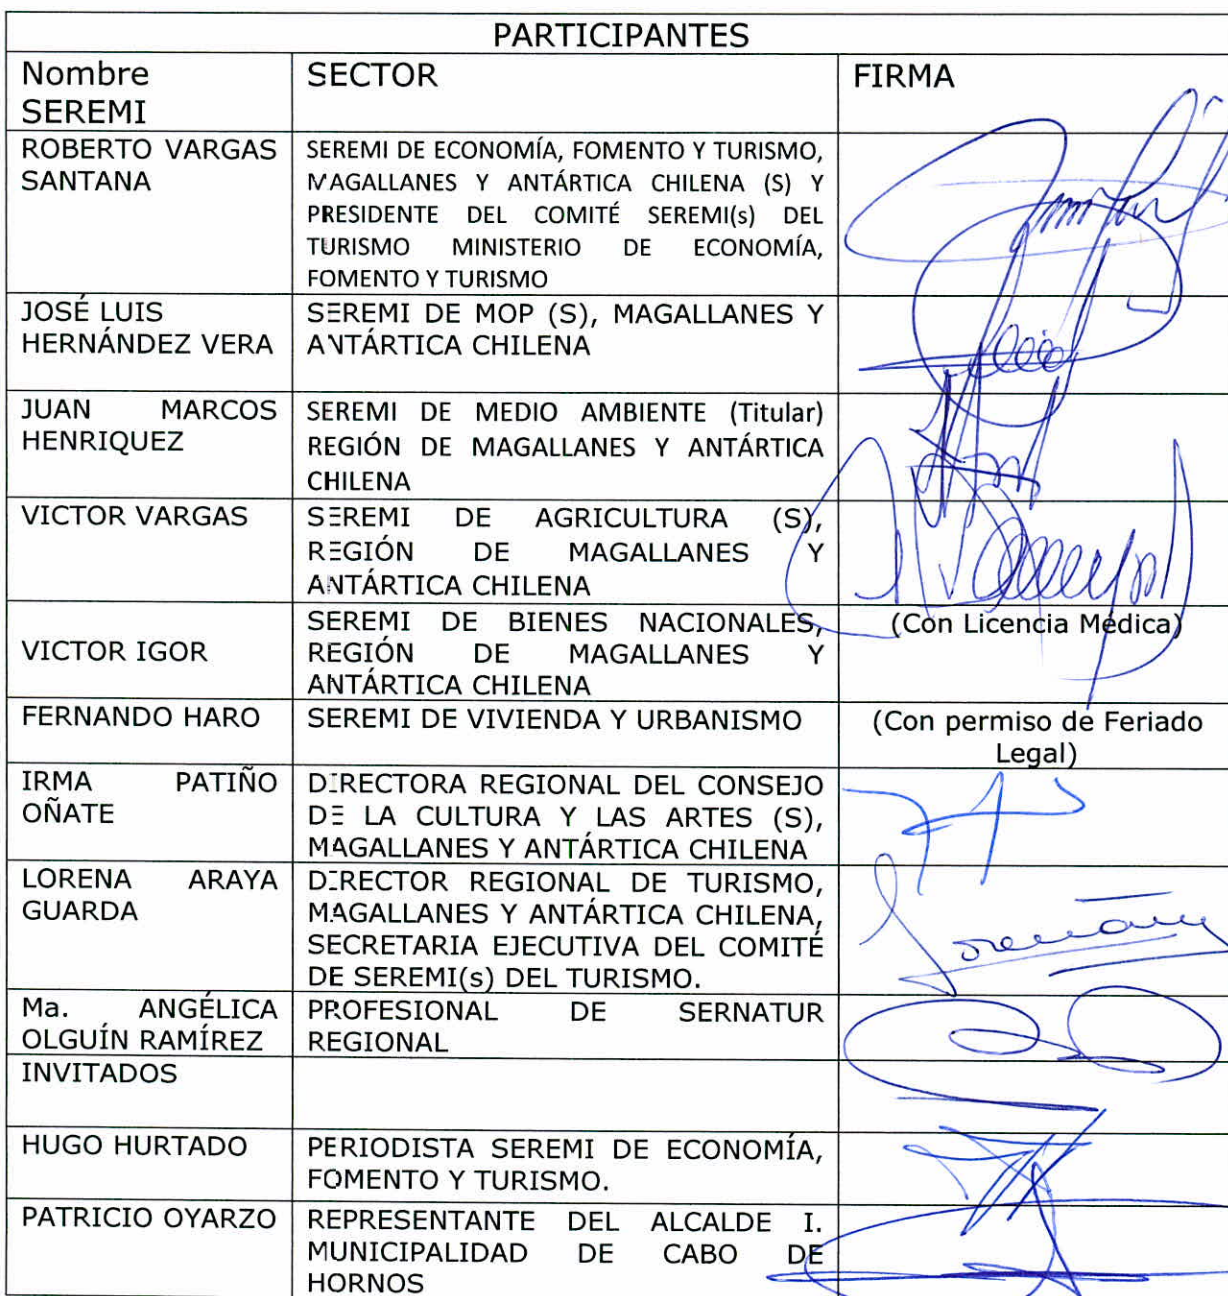 PARTICIPANTES
Nombre
SEREMI
SECTOR
FIRMA
ROBERTO VARGAS
SANTANA
SEREMI DE ECONOMÍA, FOMENTO Y TURISMO,
MAGALLANES Y ANTÁRTICA CHILENA (S) Y
PRESIDENTE DEL COMITÉ SEREMI(s) DEL
TURISMO MINISTERIO DE ECONOMÍA,
FOMENTO Y TURISMO
JOSÉ LUIS
HERNÁNDEZ VERA
SEREMI DE MOP (S), MAGALLANES Y
ANTÁRTICA CHILENA
JUAN MARCOS
HENRIQUEZ
SEREMI DE MEDIO AMBIENTE (Titular)
REGIÓN DE MAGALLANES Y ANTÁRTICA
CHILENA
VICTOR VARGAS
SEREMI DE AGRICULTURA (S),
REGIÓN DE MAGALLANES Y
ANTÁRTICA CHILENA
VICTOR IGOR
SEREMI DE BIENES NACIONALES,
REGIÓN DE MAGALLANES Y
ANTÁRTICA CHILENA
(Con Licencia Médica)
FERNANDO HARO
SEREMI DE VIVIENDA Y URBANISMO
(Con permiso de Feriado
Legal)
IRMA PATIÑO
OÑATE
DIRECTORA REGIONAL DEL CONSEJO
DE LA CULTURA Y LAS ARTES (S),
MAGALLANES Y ANTÁRTICA CHILENA
LORENA ARAYA
GUARDA
DIRECTOR REGIONAL DE TURISMO,
MAGALLANES Y ANTÁRTICA CHILENA,
SECRETARIA EJECUTIVA DEL COMITÉ
DE SEREMI(s) DEL TURISMO.
Ma. ANGÉLICA
OLGUÍN RAMÍREZ
PROFESIONAL DE SERNATUR
REGIONAL
INVITADOS
HUGO HURTADO
PERIODISTA SEREMI DE ECONOMÍA,
FOMENTO Y TURISMO.
PATRICIO OYARZO
REPRESENTANTE DEL ALCALDE I.
MUNICIPALIDAD DE CABO DE
HORNOS